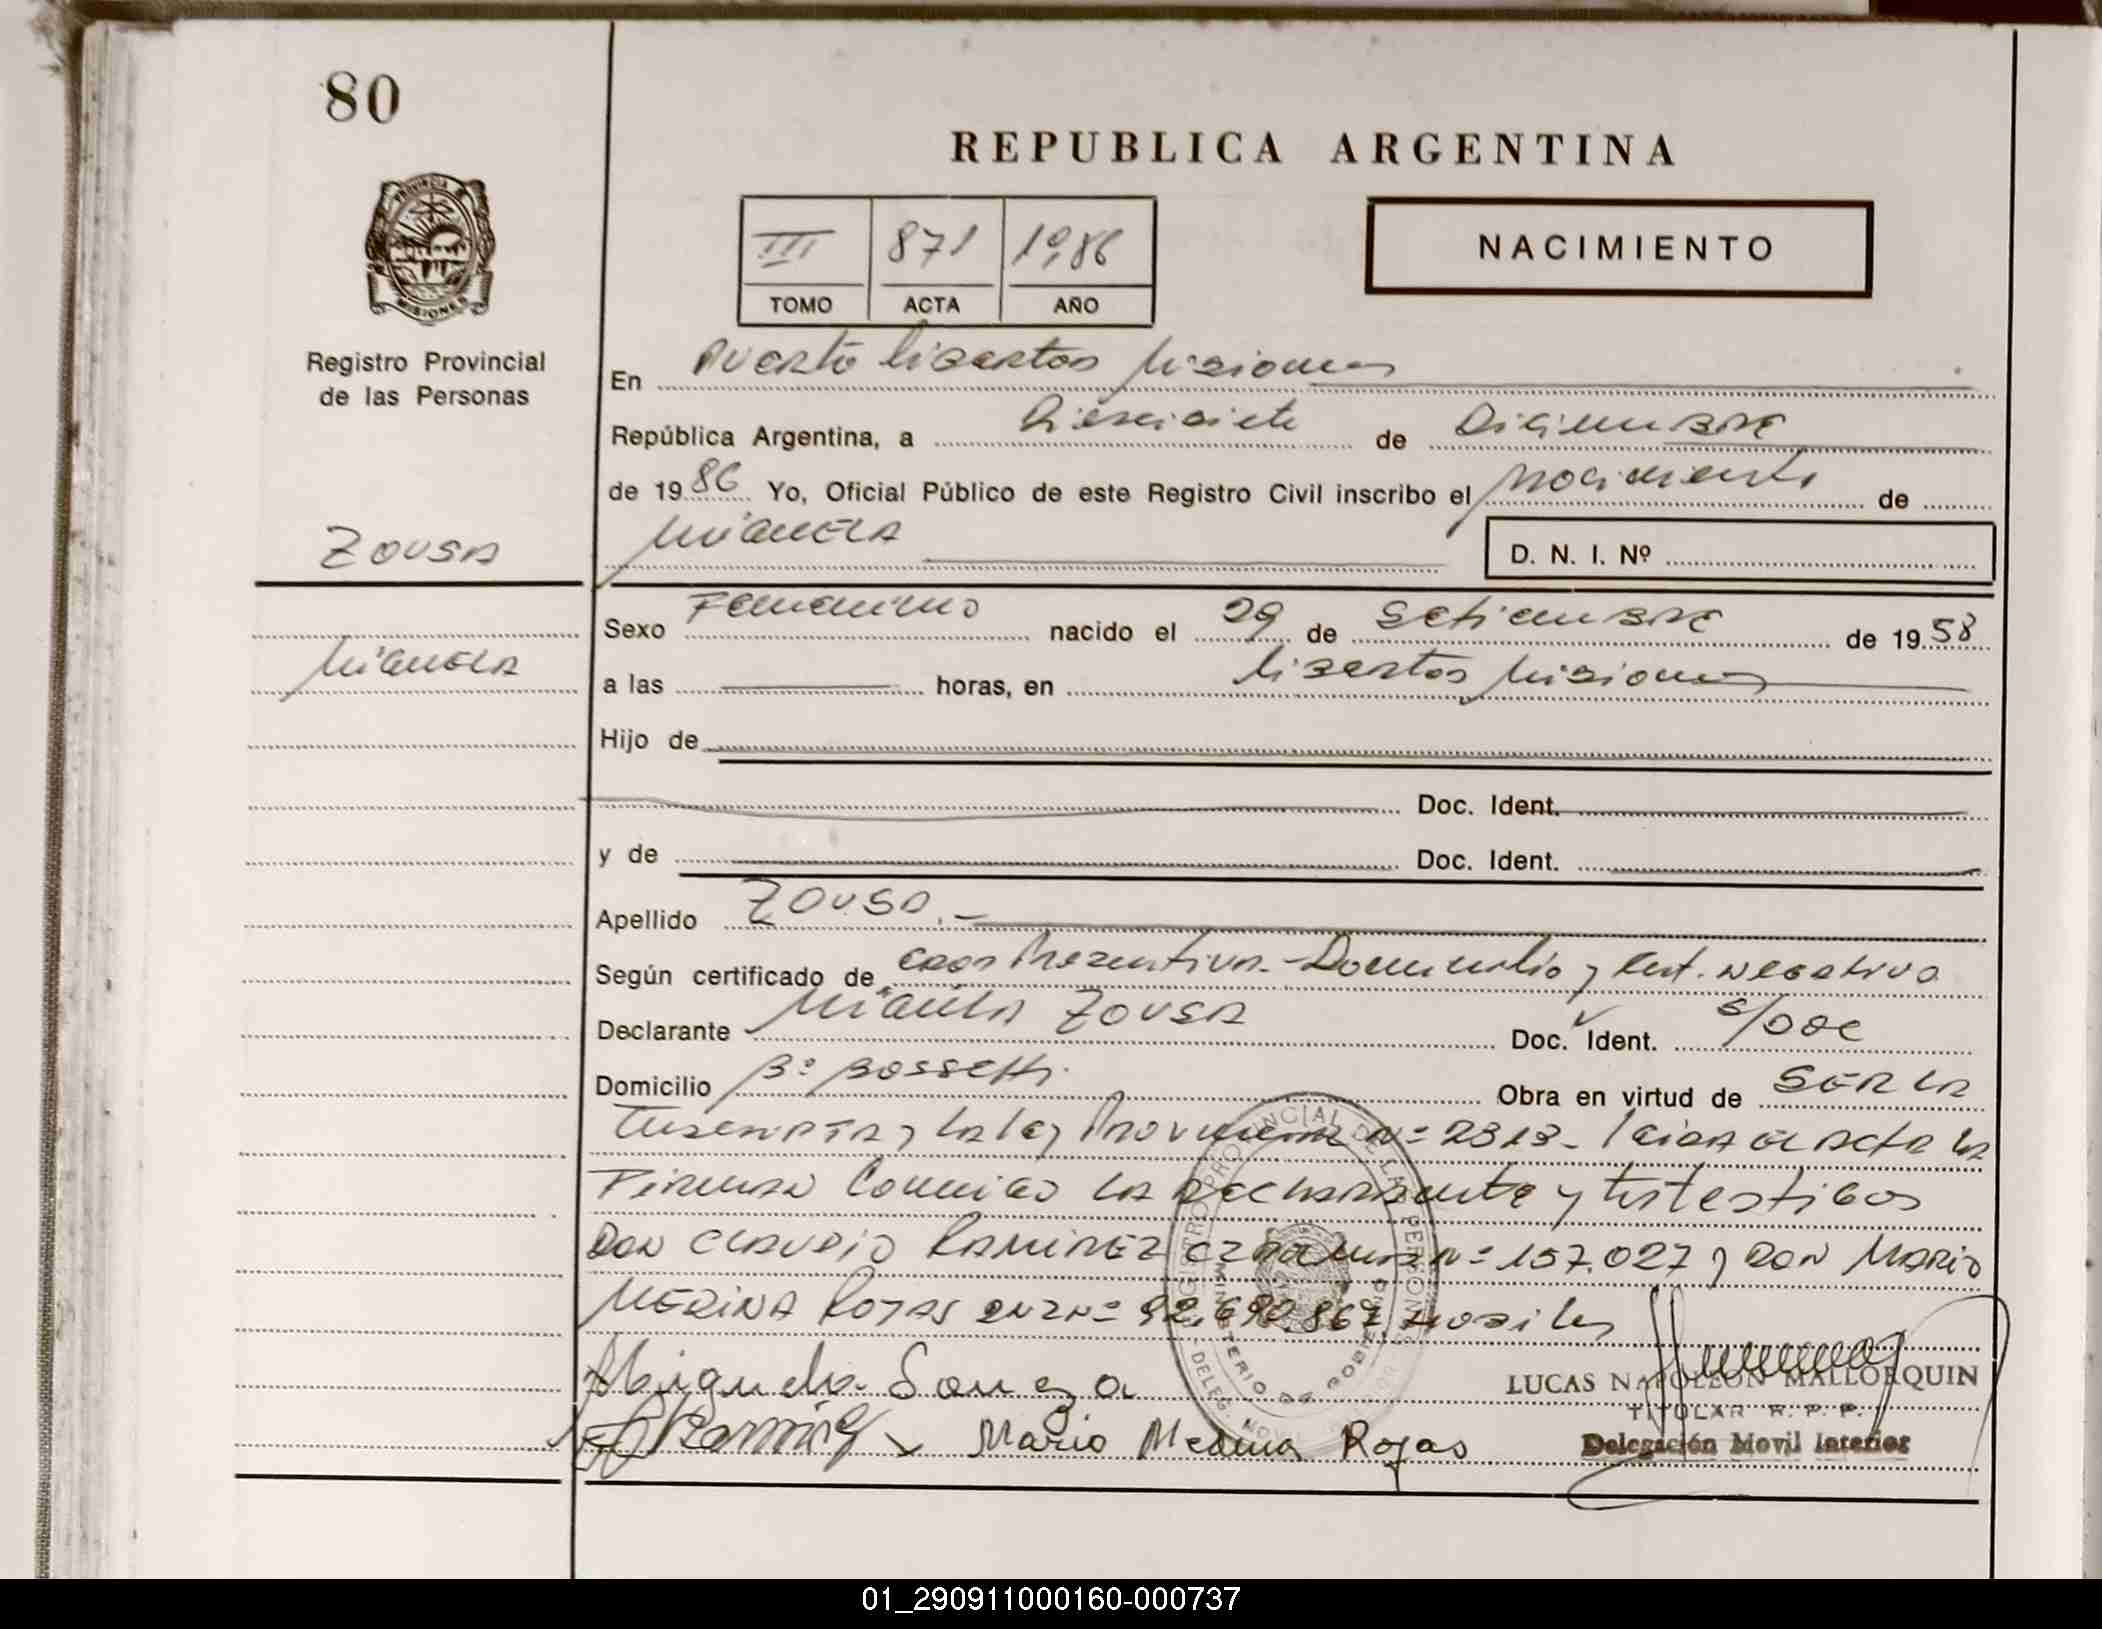 80
REPUBLICA ARGENTINA
PROVINCIA
MISIONES
III 871 1986
TOMO ACTA AÑO
NACIMIENTO
Registro Provincial
de las Personas
En Puerto Libertad Misiones
República Argentina, a Diecisiete de Diciembre
de 1986 Yo, Oficial Público de este Registro Civil inscribo el nacimiento de
Miguela
D. N. I. Nº
ZOUSA
Miguela
Sexo Femenino nacido el 29 de Setiembre de 1958
a las horas, en Libertad Misiones
Hijo de
Doc. Ident.
y de Doc. Ident.
Apellido ZOUSA.-
Según certificado de Negativo
Declarante Miguela ZOUSA Doc. Ident. S/DOC
Domicilio Bº Bossetti Obra en virtud de SER LA
y la Ley Provincial Nº 2313- Leida el acta la
Firman Conmigo la declarante y testigos
DON CLAUDIO RAMIREZ Nº 157.027 y DON MARIO
MEDINA ROJAS DNI Nº 92.690.867
Miguela Souza
Mario Medina Rojas
LUCAS NAPOLEON MALLORQUIN
TITULAR R. P. P.
Delegación Movil Interior
01_290911000160-000737